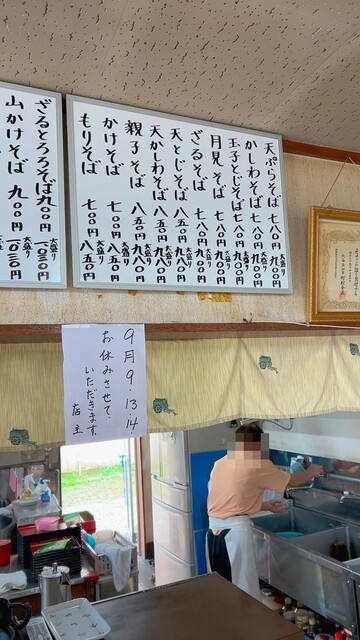 天ぷらそば七八〇円 大盛り九〇〇円
かしわそば七八〇円 大盛り九〇〇円
玉子とじそば七八〇円 大盛り九〇〇円
月見そば 七八〇円 大盛り九〇〇円
ざるそば 七八〇円 大盛り九〇〇円
天とじそば 八五〇円 大盛り九〇〇円
天かしわそば 八五〇円 大盛り九〇〇円
親子そば 八五〇円 大盛り九〇〇円
かけそば 七〇〇円 大盛り八五〇円
もりそば 七〇〇円 大盛り八五〇円
ざるとろろそば九〇〇円 大盛り一〇五〇円
山かけそば 九〇〇円 大盛り一〇五〇円
9月9.13.14
お休みさせて
いただきます。
店主